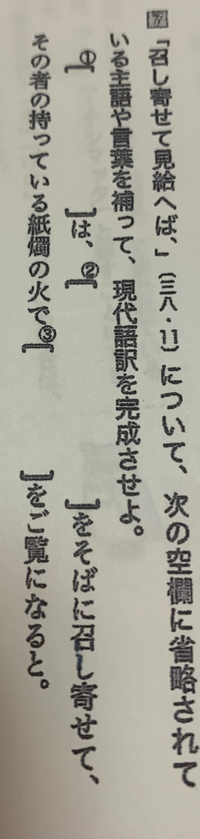 7 「召し寄せて見給へば、」（三八・11）について、次の空欄に省略されて
いる主語や言葉を補って、現代語訳を完成させよ。
①［　　　］は、②［　　　］をそばに召し寄せて、
その者の持っている紙燭の火で③［　　　］をご覧になると。